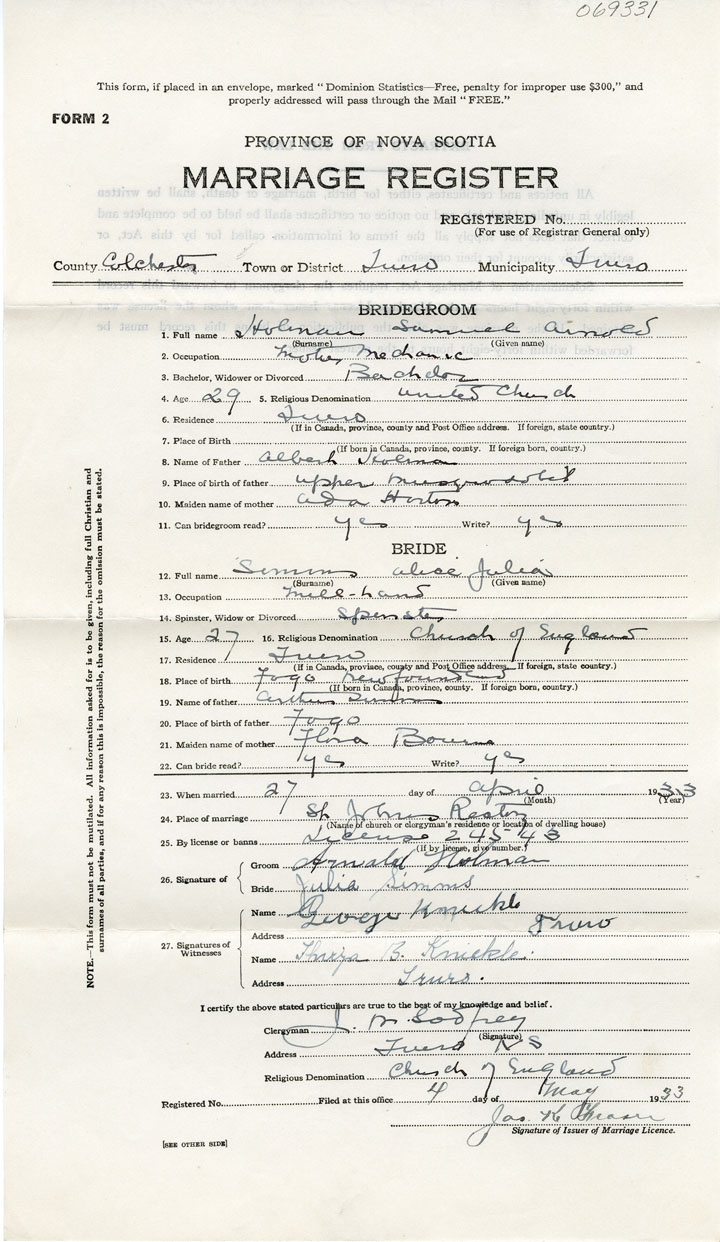 069331
This form, if placed in an envelope, marked "Dominion Statistics—Free, penalty for improper use $300," and
properly addressed will pass through the Mail "FREE."
FORM 2
PROVINCE OF NOVA SCOTIA
MARRIAGE REGISTER
REGISTERED No.
(For use of Registrar General only)
County Colchester Town or District Truro Municipality Truro
BRIDEGROOM
1. Full name Holman Samuel Arnold
(Surname) (Given name)
2. Occupation Motor Mechanic
3. Bachelor, Widower or Divorced Bachelor
4. Age 29 5. Religious Denomination United Church
6. Residence Truro
(If in Canada, province, county and Post Office address. If foreign, state country.)
7. Place of Birth
(If born in Canada, province, county. If foreign born, country.)
8. Name of Father Albert Holman
9. Place of birth of father Upper Musquodoboit
10. Maiden name of mother Ada Horton
11. Can bridegroom read? yes Write? yes
BRIDE
12. Full name Simms Alice Julia
(Surname) (Given name)
13. Occupation Mill-hand
14. Spinster, Widow or Divorced Spinster
15. Age 27 16. Religious Denomination Church of England
17. Residence Truro
(If in Canada, province, county and Post Office address. If foreign, state country.)
18. Place of birth Fogo Newfoundland
(If born in Canada, province, county. If foreign born, country.)
19. Name of father Arthur Simms
20. Place of birth of father Fogo
21. Maiden name of mother Flora Bourne
22. Can bride read? yes Write? yes
23. When married 27 day of April 1933
(Month) (Year)
24. Place of marriage St Johns Rectory
(Name of church or clergyman's residence or location of dwelling house)
25. By license or banns License 24543
(if by license, give number.)
26. Signature of
Groom Arnold Holman
Bride Julia Simms
27. Signatures of Witnesses
Name George Knickle
Address Truro
Name B. Knickle.
Address Truro.
I certify the above stated particulars are true to the best of my knowledge and belief.
Clergyman J. M. Godfrey
(Signature)
Address Truro N S
Religious Denomination Church of England
Registered No. Filed at this office 4 day of May 1933
Jas. K.
Signature of Issuer of Marriage Licence.
[SEE OTHER SIDE]
NOTE.—This form must not be mutilated. All information asked for is to be given, including full Christian and
surnames of all parties, and if for any reason this is impossible, the reason for the omission must be stated.